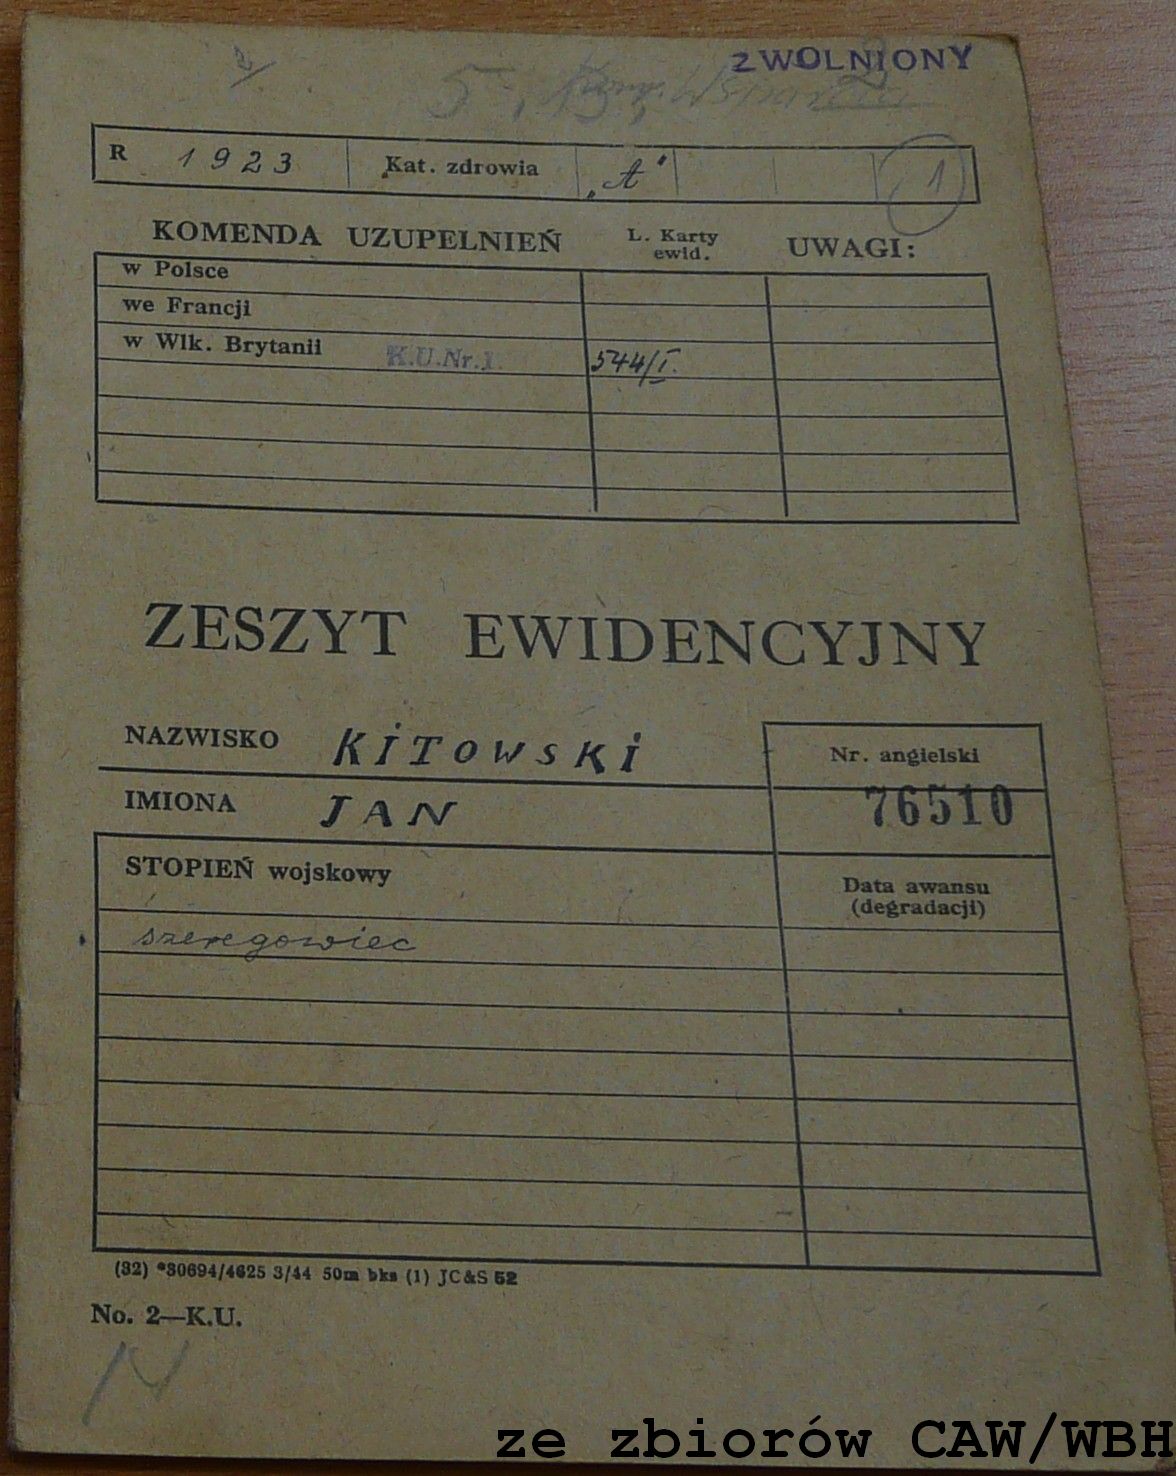 ZWOLNIONY
5
R 1923 Kat. zdrowia „A" 1
KOMENDA UZUPELNIEŃ L. Karty ewid. UWAGI:
w Polsce
we Francji
w Wlk. Brytanii K.U.Nr.1. 544/I.
ZESZYT EWIDENCYJNY
NAZWISKO KITOWSKI Nr. angielski
IMIONA JAN 76510
STOPIEŃ wojskowy Data awansu
(degradacji)
szeregowiec
(32) *30694/4625 3/44 50m bks (1) JC&S 52
No. 2—K.U.
N
ze zbiorów CAW/WBH